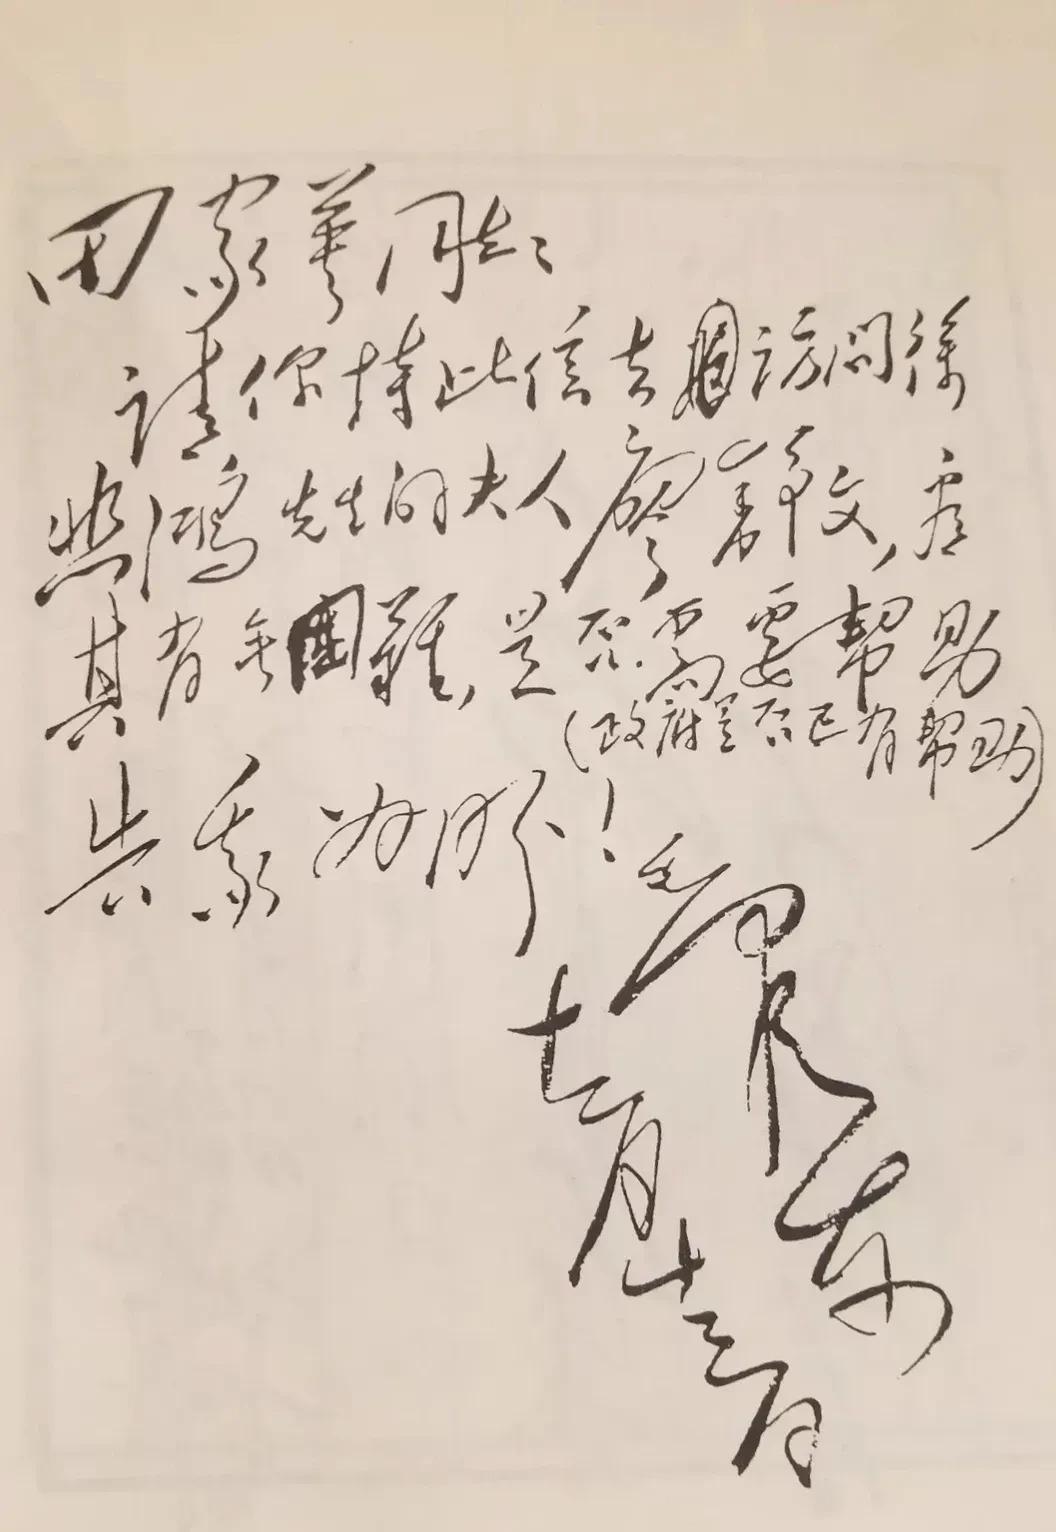 田家英同志：
请你持此信去访问徐
悲鸿先生的夫人廖静文，看
其有无困难，是否需要帮助
（政府是否已有帮助）
告我为盼！
毛泽东
十二月十三日